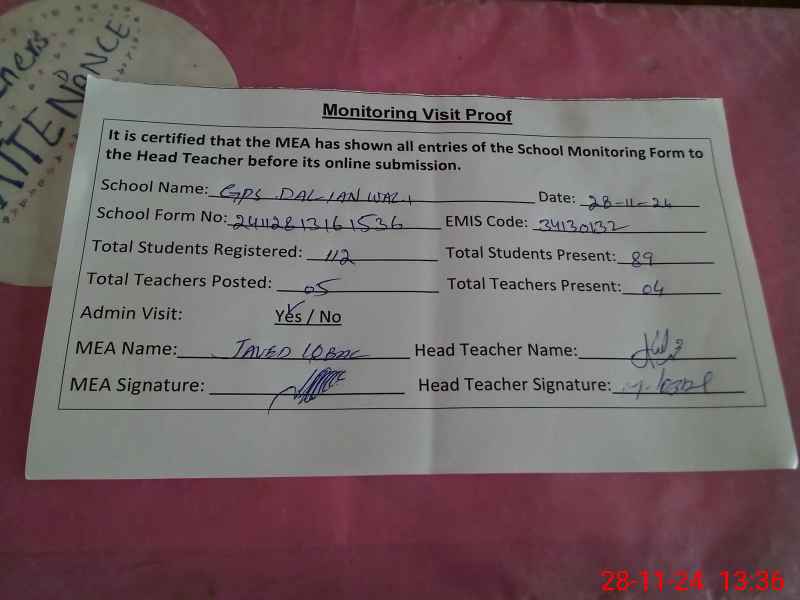 chers
ATTENDANCE
Monitoring Visit Proof
It is certified that the MEA has shown all entries of the School Monitoring Form to
the Head Teacher before its online submission.
School Name: GPS DALIANWALI Date: 28-11-24
School Form No: 2411281316 1536 EMIS Code: 34130132
Total Students Registered: 112 Total Students Present: 89
Total Teachers Posted: 05 Total Teachers Present: 04
Admin Visit: Yes / No
MEA Name: JAVED IQBAL Head Teacher Name:
MEA Signature: Head Teacher Signature:
28-11-24 13:36